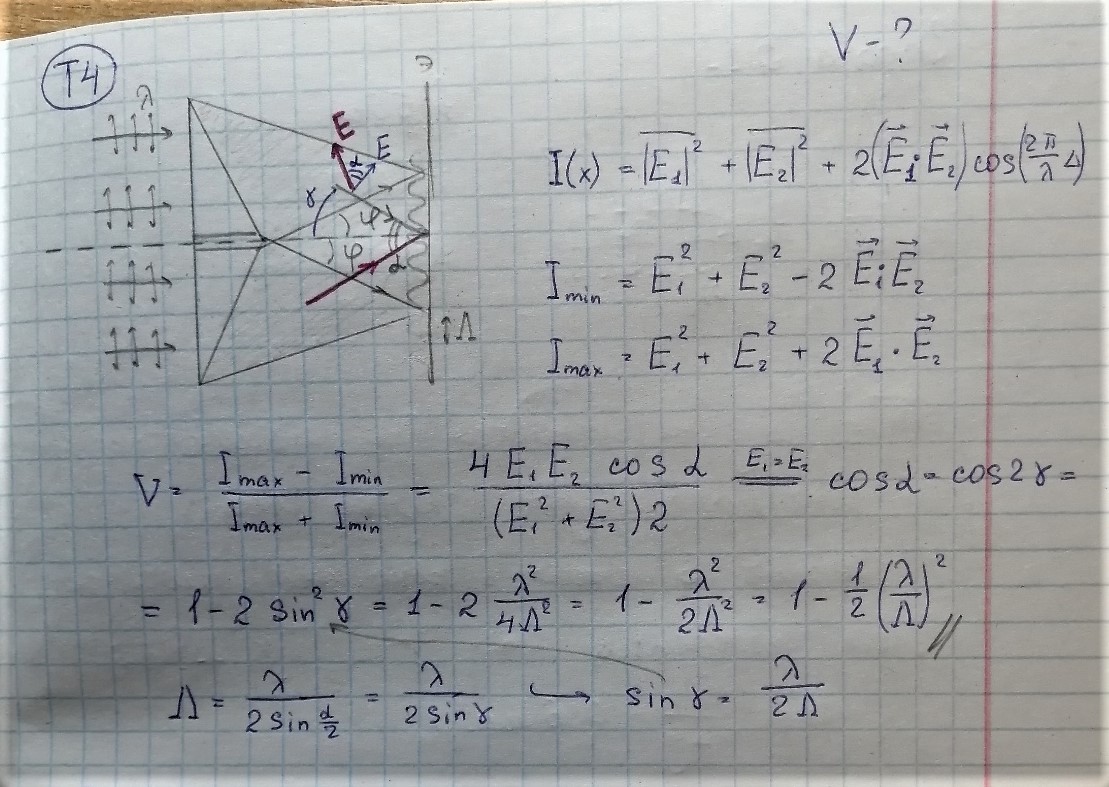 T4
V - ?
λ
Э
E
E
α
γ
φ
φ
α
Λ
I(x) = |E₁|² + |E₂|² + 2(E⃗₁·E⃗₂) cos(2π/λ Δ)
I min = E₁² + E₂² - 2 E⃗₁·E⃗₂
I max = E₁² + E₂² + 2 E⃗₁·E⃗₂
V = (I max - I min)/(I max + I min) = (4 E₁ E₂ cos α)/((E₁² + E₂²) 2) E₁ = E₂ = cos α = cos 2γ =
= 1 - 2 sin² γ = 1 - 2 λ²/4Λ² = 1 - λ²/2Λ² = 1 - 1/2 (λ/Λ)² //
Λ = λ/(2 sin α/2) = λ/(2 sin γ) → sin γ = λ/2Λ